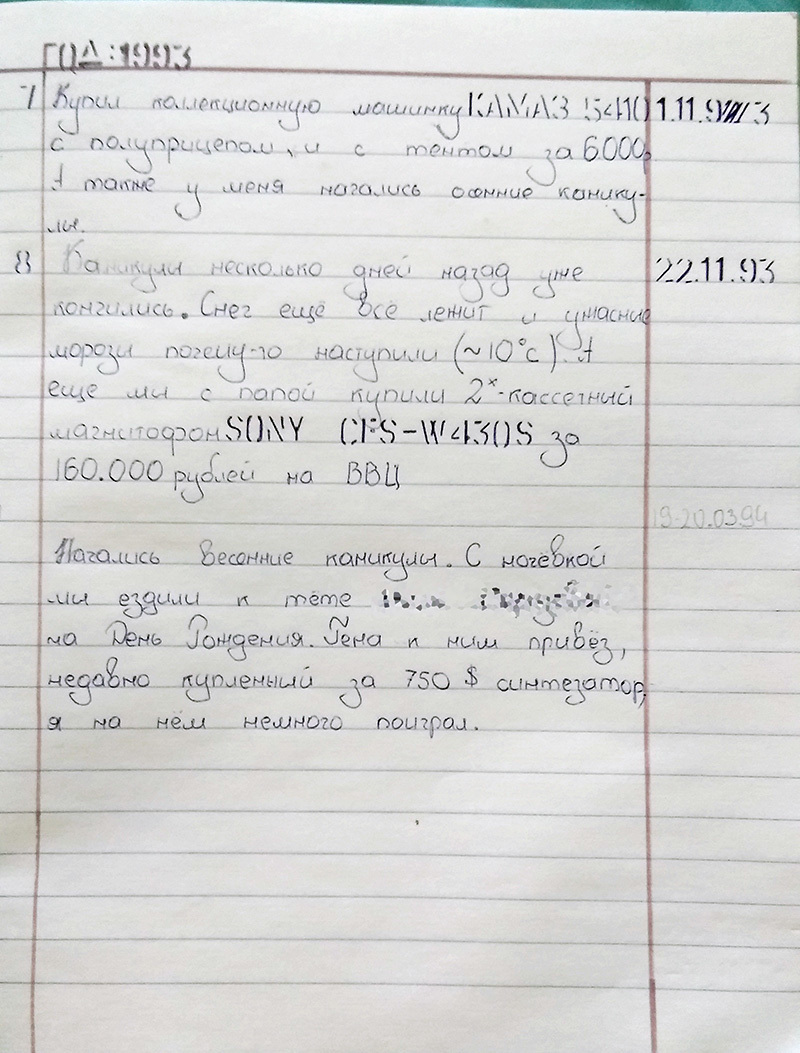 ГОД:1993
7 Купил коллекционную машинку КАМАЗ 5410 1.11.93
с полуприцепом, и с тентом за 6000р
А также у меня начались осенние канику-
лы.
8 Каникулы несколько дней назад уже 22.11.93
кончились. Снег ещё всё лежит и ужасние
морози почему-то наступили (~10°с). А
еще ми с папой купили 2х-кассетный
магнитофон SONY CFS-W430S за
160.000 рублей на ВВЦ
19-20.03.94
Начались весенние каникулы. С ночёвкой
ми ездили к тёте
на День Рождения. Гена к ним привёз,
недавно купленный за 750 $ синтезатор,
я на нём немного поиграл.